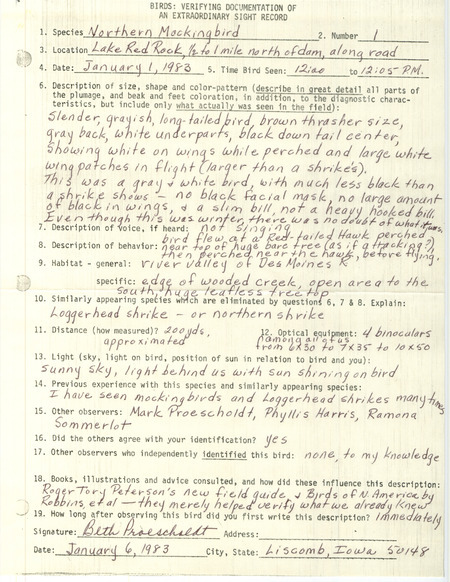 BIRDS: VERIFYING DOCUMENTATION OF
AN EXTRAORDINARY SIGHT RECORD
1. Species Northern Mockingbird 2. Number 1
3. Location Lake Red Rock, ½ to 1 mile north of dam, along road
4. Date: January 1, 1983 5. Time Bird Seen: 12:00 to 12:05 P.M.
6. Description of size, shape and color-pattern (describe in great detail all parts of
the plumage, and beak and feet coloration, in addition, to the diagnostic charac-
teristics, but include only what actually was seen in the field):
Slender, grayish, long-tailed bird, brown thrasher size,
gray back, white underparts, black down tail center,
showing white on wings while perched and large white
wing patches in flight (larger than a shrike's).
This was a gray & white bird, with much less black than
a shrike shows - no black facial mask, no large amount
of black in wings, & a slim bill, not a heavy hooked bill.
Even though this was winter, there was no doubt of what it was.
7. Description of voice, if heard: not singing
8. Description of behavior: bird flew at a Red-tailed Hawk perched
near top of huge bare tree (as if attacking?)
then perched near the hawk, before flying.
9. Habitat - general: river valley of Des Moines R
specific: edge of wooded creek, open area to the
south, huge leafless treetop
10. Similarly appearing species which are eliminated by questions 6, 7 & 8. Explain:
Loggerhead shrike - or northern shrike
11. Distance (how measured)? 200 yds, 12. Optical equipment: 4 binoculars
approximated (among all of us
from 6x30 to 7x35 to 10x50
13. Light (sky, light on bird, position of sun in relation to bird and you):
sunny sky, light behind us with sun shining on bird
14. Previous experience with this species and similarly appearing species:
I have seen mockingbirds and Loggerhead shrikes many times
15. Other observers: Mark Proescholdt, Phyllis Harris, Ramona
Sommerlot
16. Did the others agree with your identification? yes
17. Other observers who independently identified this bird: none, to my knowledge
18. Books, illustrations and advice consulted, and how did these influence this description:
Roger Tory Peterson's new field guide, & Birds of N. America by
Robbins, et al - they merely helped verify what we already knew
19. How long after observing this bird did you first write this description? Immediately
Signature: Beth Proescholdt Address:
Date: January 6, 1983 City, State: Liscomb, Iowa 50148